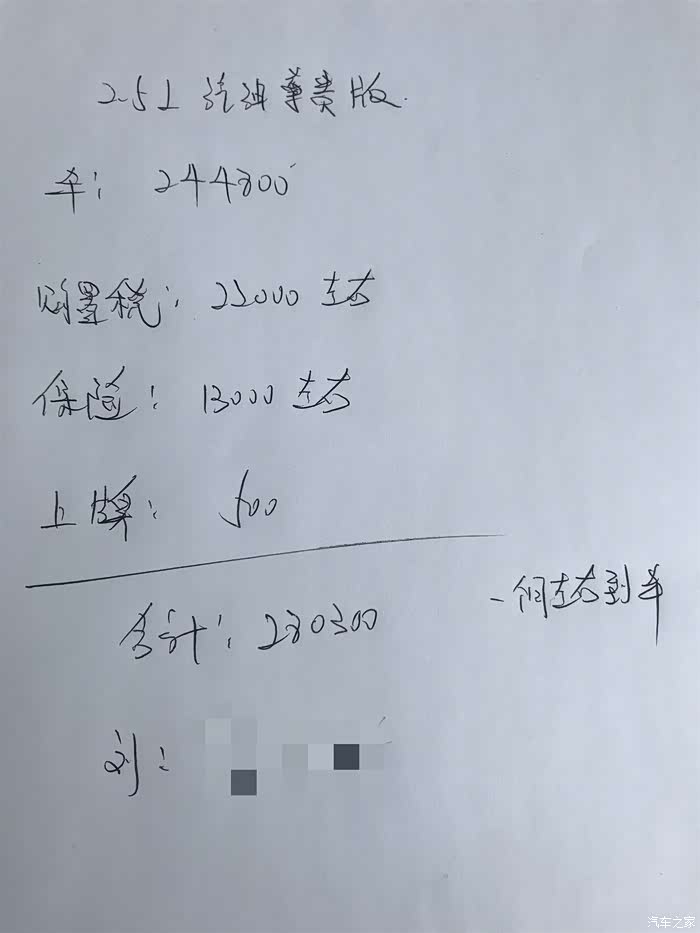 2.5L 汽油尊贵版.
车: 244800
购置税: 22000 左右
保险: 13000 左右
上牌: 500
合计: 280300
一个月左右到车
刘:
汽车之家